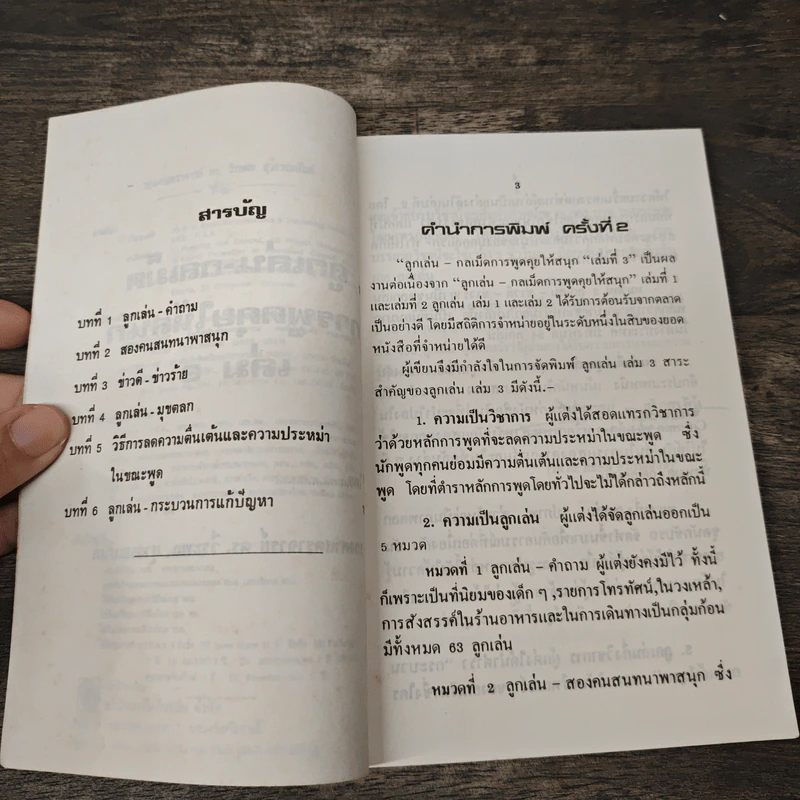 สารบัญ
บทที่ 1 ลูกเล่น - คำถาม
บทที่ 2 สองคนสนทนาพาสนุก
บทที่ 3 ข่าวดี - ข่าวร้าย
บทที่ 4 ลูกเล่น - มุขตลก
บทที่ 5 วิธีการลดความตื่นเต้นและความประหม่า
ในขณะพูด
บทที่ 6 ลูกเล่น - กระบวนการแก้ปัญหา
3
คำนำการพิมพ์ ครั้งที่ 2
"ลูกเล่น – กลเม็ดการพูดคุยให้สนุก "เล่มที่ 3" เป็นผล
งานต่อเนื่องจาก "ลูกเล่น – กลเม็ดการพูดคุยให้สนุก" เล่มที่ 1
และเล่มที่ 2 ลูกเล่น เล่ม 1 และเล่ม 2 ได้รับการต้อนรับจากตลาด
เป็นอย่างดี โดยมีสถิติการจำหน่ายอยู่ในระดับหนึ่งในสิบของยอด
หนังสือที่จำหน่ายได้ดี
ผู้เขียนจึงมีกำลังใจในการจัดพิมพ์ ลูกเล่น เล่ม 3 สาระ
สำคัญของลูกเล่น เล่ม 3 มีดังนี้.–
1. ความเป็นวิชาการ ผู้แต่งได้สอดแทรกวิชาการ
ว่าด้วยหลักการพูดที่จะลดความประหม่าในขณะพูด ซึ่ง
นักพูดทุกคนย่อมมีความตื่นเต้นและความประหม่าในขณะ
พูด โดยที่ตำราหลักการพูดโดยทั่วไปจะไม่ได้กล่าวถึงหลักนี้
2. ความเป็นลูกเล่น ผู้แต่งได้จัดลูกเล่นออกเป็น
5 หมวด
หมวดที่ 1 ลูกเล่น – คำถาม ผู้แต่งยังคงมีไว้ ทั้งนี้
ก็เพราะเป็นที่นิยมของเด็ก ๆ ,รายการโทรทัศน์,ในวงเหล้า,
การสังสรรค์ในร้านอาหารและในการเดินทางเป็นกลุ่มก้อน
มีทั้งหมด 63 ลูกเล่น
หมวดที่ 2 ลูกเล่น – สองคนสนทนาพาสนุก ซึ่ง